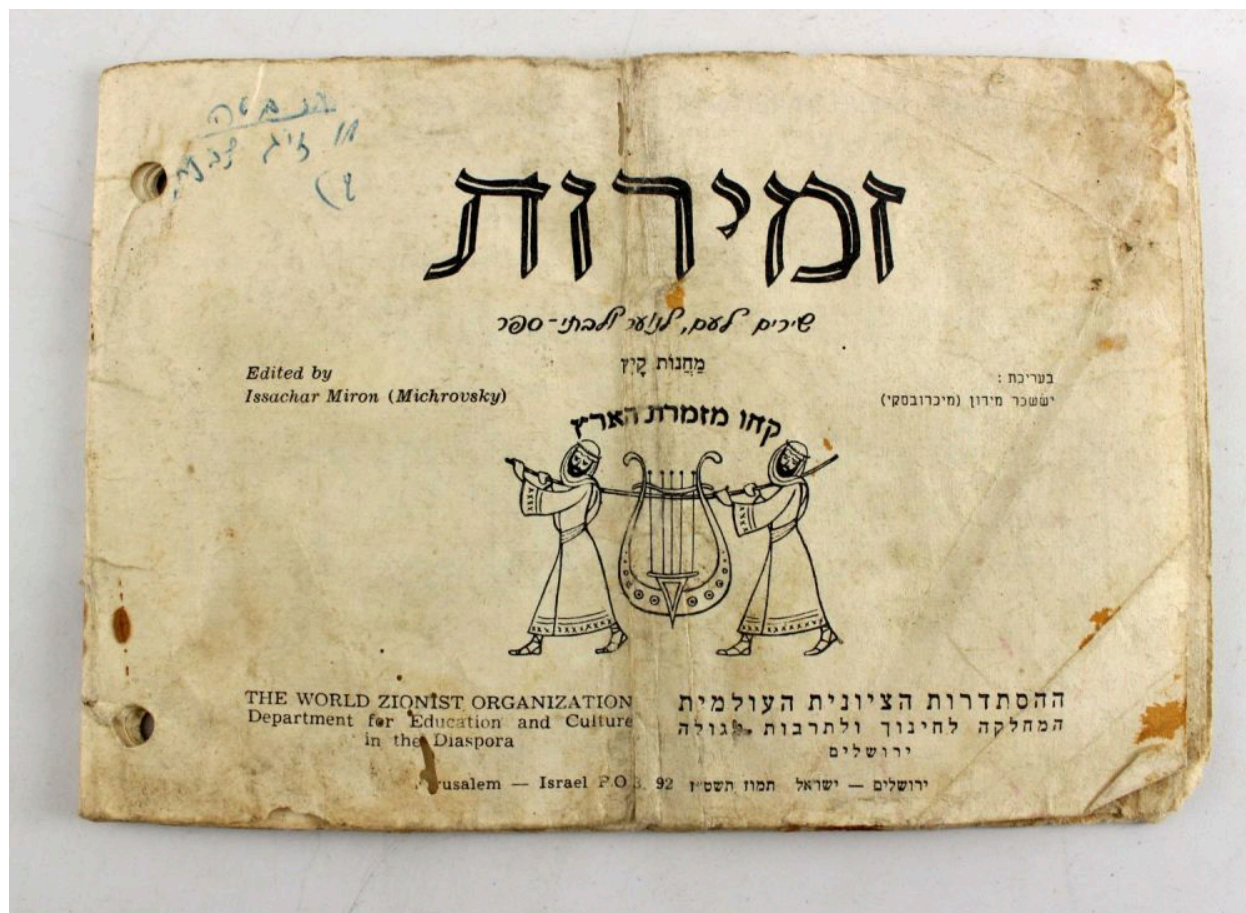 זמירות
שירים לעם, לנוער ולבתי-ספר
מַחֲנוֹת קַיִץ
Edited by
Issachar Miron (Michrovsky)
בעריכת :
יששכר מירון (מיכרובסקי)
קחו מזמרת הארץ
THE WORLD ZIONIST ORGANIZATION
Department for Education and Culture
in the Diaspora
ההסתדרות הציונית העולמית
המחלקה לחינוך ולתרבות בגולה
ירושלים
Jerusalem — Israel P.O.B. 92
ירושלים — ישראל תמוז תשט״ז